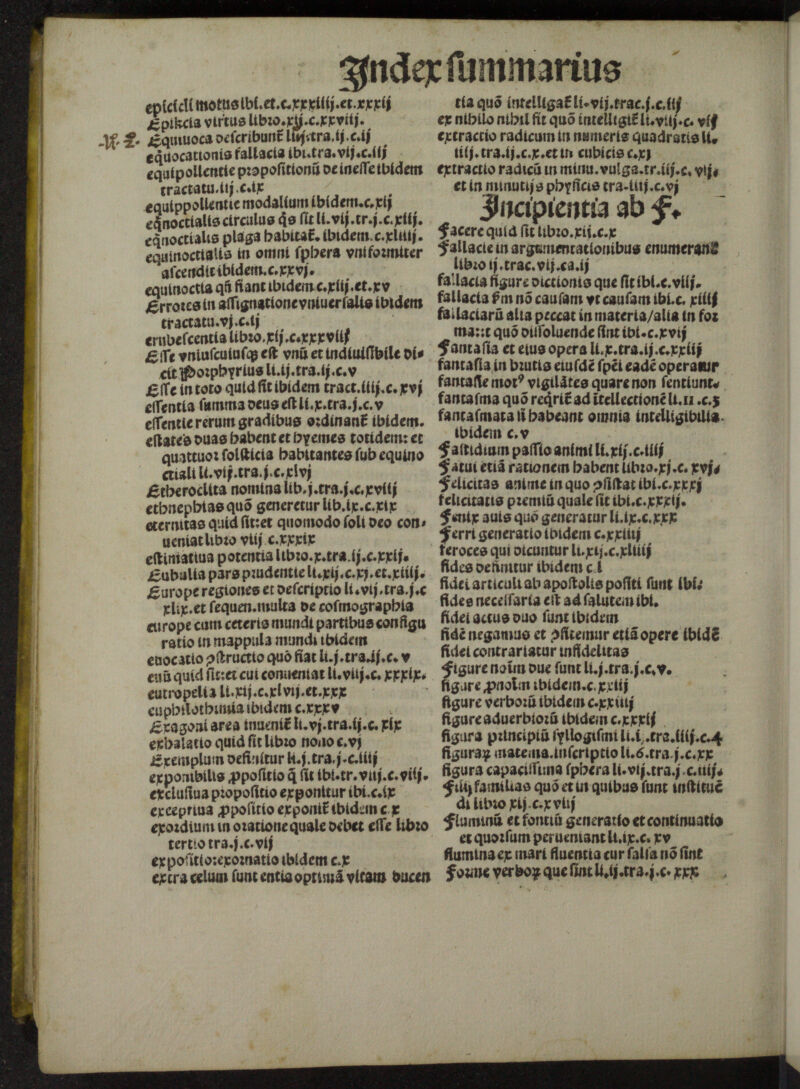 Index summarius
epicicli motus ibi.et.c.xxxiiij.et.xxxij
Epikeia virtus libro.xij.c.xxviij.
Equiuoca describunt̃ li.ij.tra.ij.c.ij
equocationis fallacia ibi.tra.vij.c.iij
equipollentie propositionū de inesse ibidem
tractatu.iij.c.ix
equippollentie modalium ibidem.c.xij
eq̄noctialis circulus q̇s sit li.vij.tr.j.c.xiij.
eq̄noctialis plaga habitat̃. ibidem.c.xliiij.
equinoctialis in omni sphera vniformiter
ascendit ibidem.c.xxvj.
equinoctia qñ fiant ibidem c.xiij.et.xv
Errores in assignatione vniuersalis ibidem
tractatu.vj.c.ij
erubescentia libro.xij.c.xxxviij
Esse vniuscuiusqȝ est vnū et indiuisibile di⸗
cit Porphyrius li.ij.tra.ij.c.v
Esse in toto quid sit ibidem tract.iiij.c.xvj
essentia summa deus est li.x.tra.j.c.v
essentie rerum gradibus ordinant̃ ibidem.
estates duas habent et hyemes totidem: et
quattuor solsticia habitantes sub equino
ctiali li.vij.tra.j.c.xlvj
Etheroclita nomina lib.j.tra.j.c.xviij
ethnephias quō generetur lib.ix.c.xix
eternitas quid sit:et quomodo soli deo con⸗
ueniat libro viij c.xxxix
estimatiua potentia libro.x.tra.ij.c.xxij.
Eubulia pars prudentie li.xij.c.xj.et.xiiij.
Europe regiones et descriptio li.vij.tra.j.c
xlix.et sequen.multa de cosmographia
europe cum ceteris mundi partibus configu
ratio in mappula mundi ibidem
euocatio ꝯstructio quō fiat li.j.tra.ij.c.v
euū quid sit:et cui conueniat li.viij.c.xxxix.
eutropelia li.xij.c.xlvij.et.xxx
euphilothimia ibidem c.xxxv
Exagoni area inuenit̃ li.vj.tra.ij.c.xix
exhalatio quid sit libro nono c.vj
Exemplum definitur li.j.tra.j.c.iiij
exponibilis ꝓpositio q̄ sit ibi.tr.viij.c.viij.
exclusiua propositio exponitur ibi.c.ix
exceptiua ꝓpositio exponit̃ ibidem c.x
exordium in oratione quale debet esse libro
tertio tra.j.c.vij
expositio:exornatio ibidem c.x
extra celum sunt entia optimā vitam ducen
tia quō intelligat̃ li.vij.trac.j.c.iij
ex nihilo nihil fit quō intelligit̃ li.viij.c.vij
extractio radicum in numeris quadratis li.
iiij.tra.ij.c.x.et in cubicis c.xj
extractio radicū in minu.vulga.tr.iij.c.vij.
et in minutijs physicis tra.iiij.c.vj
Incipientia ab f.
Facere quid sit libro.xij.c.x
Fallacie in argumentationibus enumerant̃
libro ij.trac.vij.ca.ij
fallacia figure dictionis que sit ibi.c.viij.
fallacia ẜm nō causam vt causam ibi.c.xiiij
fallaciarū alia peccat in materia/alia in for
ma:et quō dissoluende sint ibi.c.xvij
Fantasia et eius opera li.x.tra.ij.c.xxiij
fantasia in brutis eiusdē spēi eadē operatur
fantasie motꝰ vigilātes quare non sentiunt.
fantasma quō reqrit̃ ad ītellectionē li.11.c.5
fantasmata si habeant omnia intelligibilia.
ibidem c.v
Fastidium passio animi li.xij.c.iiij
Fatui etiā rationem habent libro.xj.c.xvj.
Felicitas anime in quo ꝯsistat ibi.c.xxxj
felicitatis premiū quale sit ibi.c.xxxij.
Fenix auis quō generatur li.ix.c.xxx
Ferri generatio ibidem c.xxiiij
feroces qui dicuntur li.xij.c.xliiij
fides definitur ibidem c.l
fidei articuli ab apostolis positi sunt ibi.
fides necessaria est ad salutem ibi.
fidei actus duo sunt ibidem
fidē negamus et ꝓfitemur etiā opere ibidē
fidei contrariatur infidelitas
Figure noīm due sunt li.j.tra.j.c.v.
figure ꝓnoīm ibidem.c.xxiij
figure verborū ibidem c.xxiiij
figure aduerbiorū ibidem c.xxxij
figura principiū syllogismi li.i.tra.iiij.c.4
figuraꝝ matema.inscriptio li.6.tra.j.c.xx
figura capacissima sphera li.vij.tra.j.c.iiij.
Filij familias quō et in quibus sunt institue̅
di libro xij.c.xviij
Fluminū et fontiū generatio et continuatio
et quorsum perueniant li.ix.c.xv
flumina ex mari fluentia cur salsa nō sint
Forme verboꝝ que sint li.ij.tra.j.c.xxx